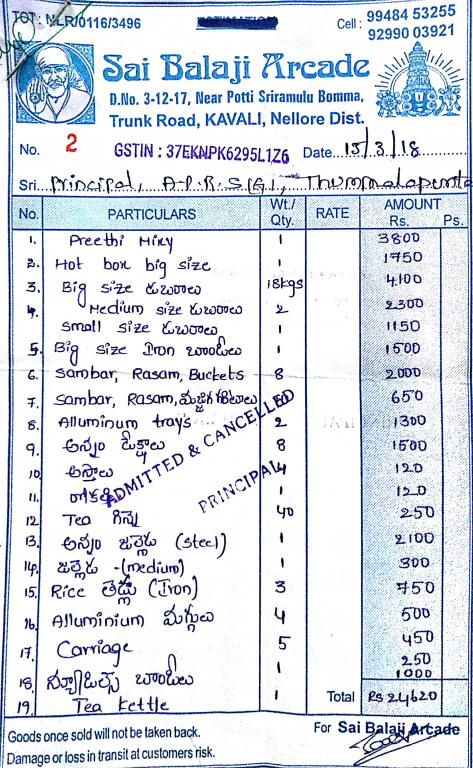 TOT: NLR/0116/3496
ESTIMATION
Cell : 99484 53255
92990 03921
Sai Balaji Arcade
D.No. 3-12-17, Near Potti Sriramulu Bomma,
Trunk Road, KAVALI, Nellore Dist.
No. 2 GSTIN : 37EKNPK6295L1Z6 Date 15/3/18
Sri Principal, A.P.R.S(G), Thummalapenta
No. PARTICULARS Wt./Qty. RATE AMOUNT Rs. Ps.
1. Preethi Mixy 1 3800
2. Hot box big size 1 1750
3. Big size డబరాలు 18kgs 4100
4. Medium size డబరాలు 2 2300
Small size డబరాలు 1 1150
5. Big size Iron బాండీలు 1 1500
6. Sambar, Rasam, Buckets 8 2000
7. Sambar, Rasam, మజ్జిగ 650
8. Alluminum tray's 2 1300
9. అన్నం 8 1500
10. 4 120
11. 1 120
12 Tea గిన్నె 40 250
13. అన్నం జల్లెడు (steel) 1 2100
14. జల్లెడు -(medium) 1 300
15. Rice తెడ్లు (Iron) 3 750
16. Alluminium మగ్గులు 4 500
17. Carriage 5 450
18. బాండీలు 1 250
19. Tea kettle 1 1000
Total Rs 24620
ADMITTED & CANCELLED
PRINCIPAL
Goods once sold will not be taken back.
Damage or loss in transit at customers risk.
For Sai Balaji Arcade